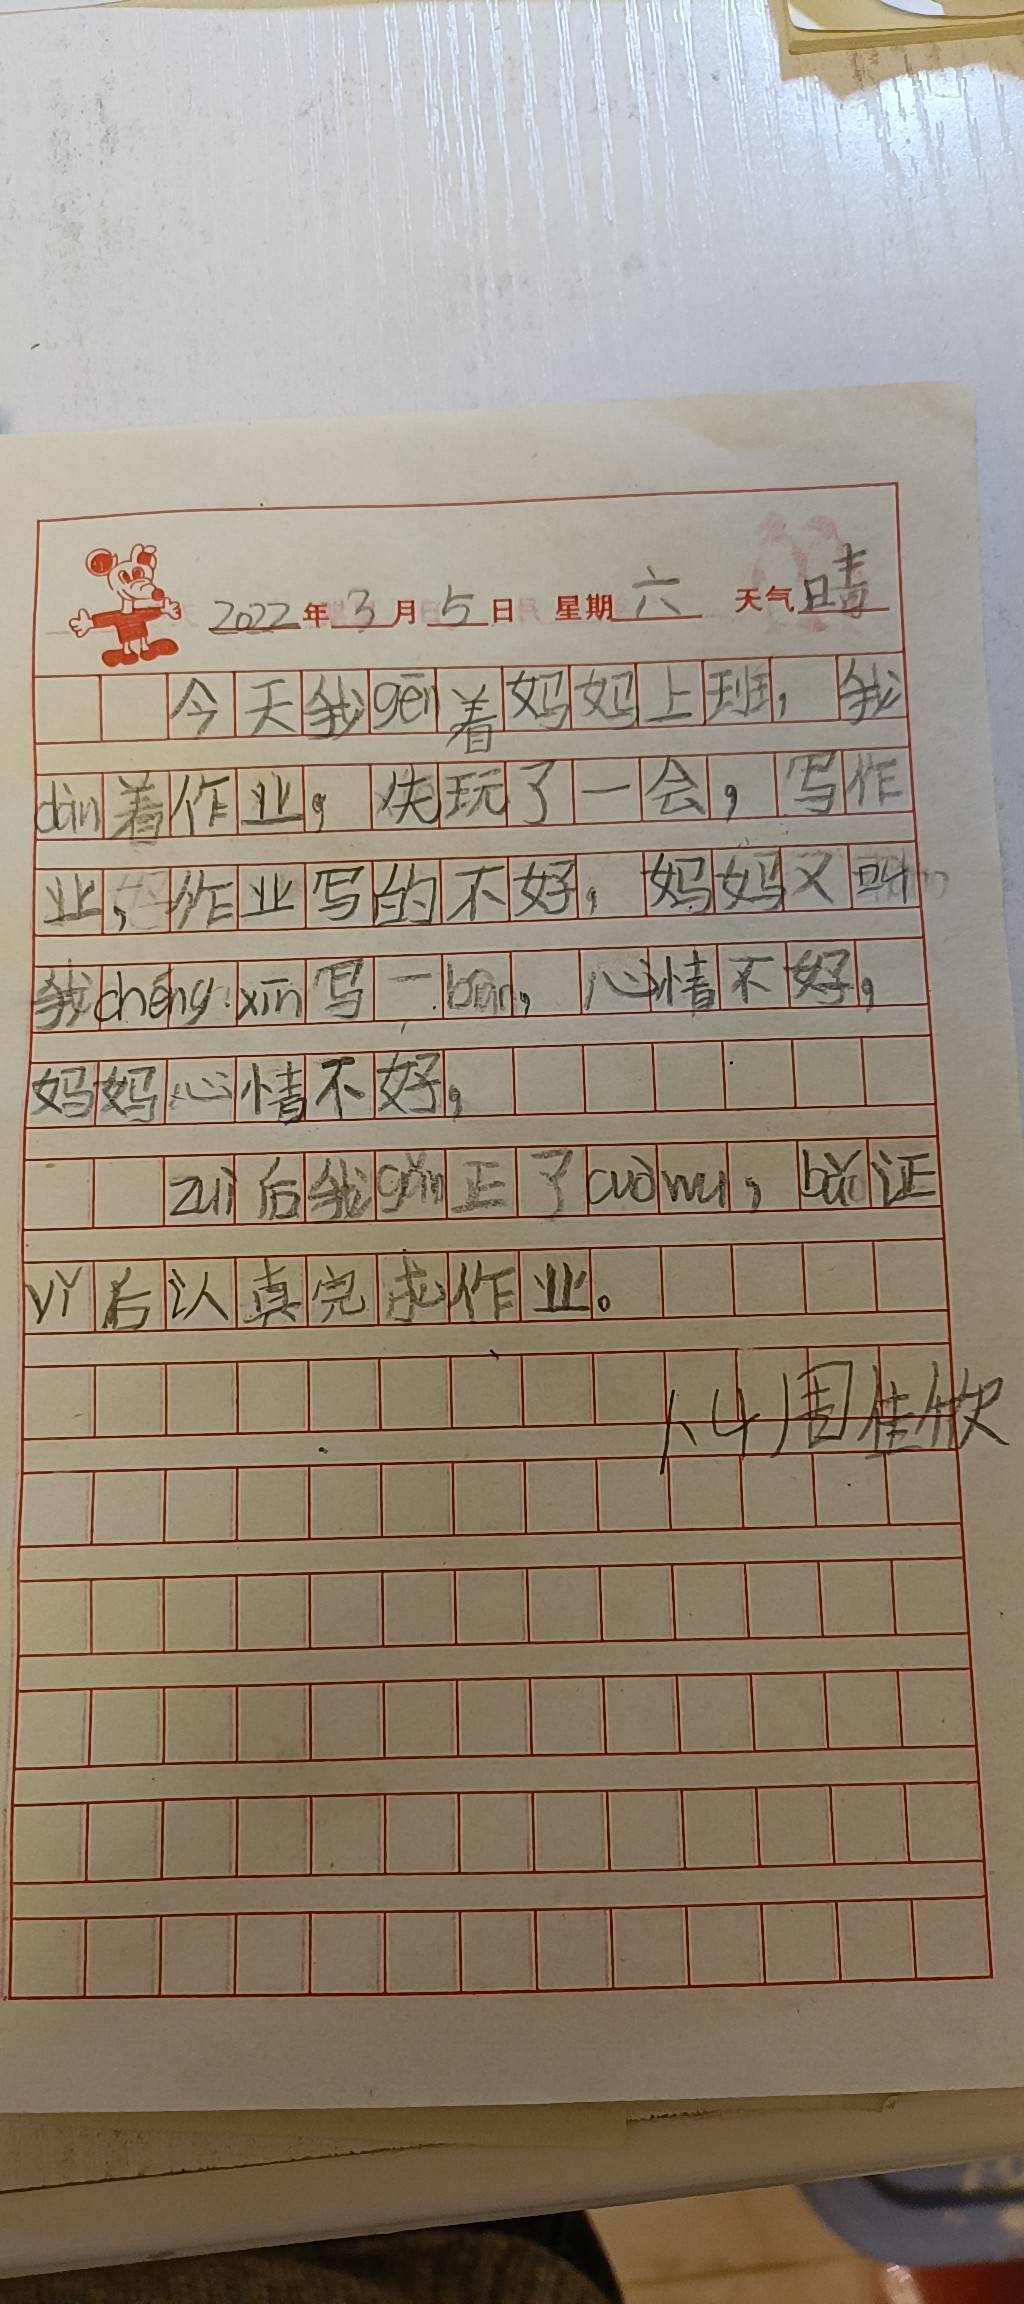 2022年3月5日 星期六 天气晴
今天我gēn着妈妈上班，我
dàn着作业，先玩了一会，写作
业，作业写的不好，妈妈又叫
我chéng xīn写一biàn，心情不好，
妈妈心情不好，
zuì后我gǎi正了cuò wu，bǎo证
yǐ后认真完成作业。
周佳欣